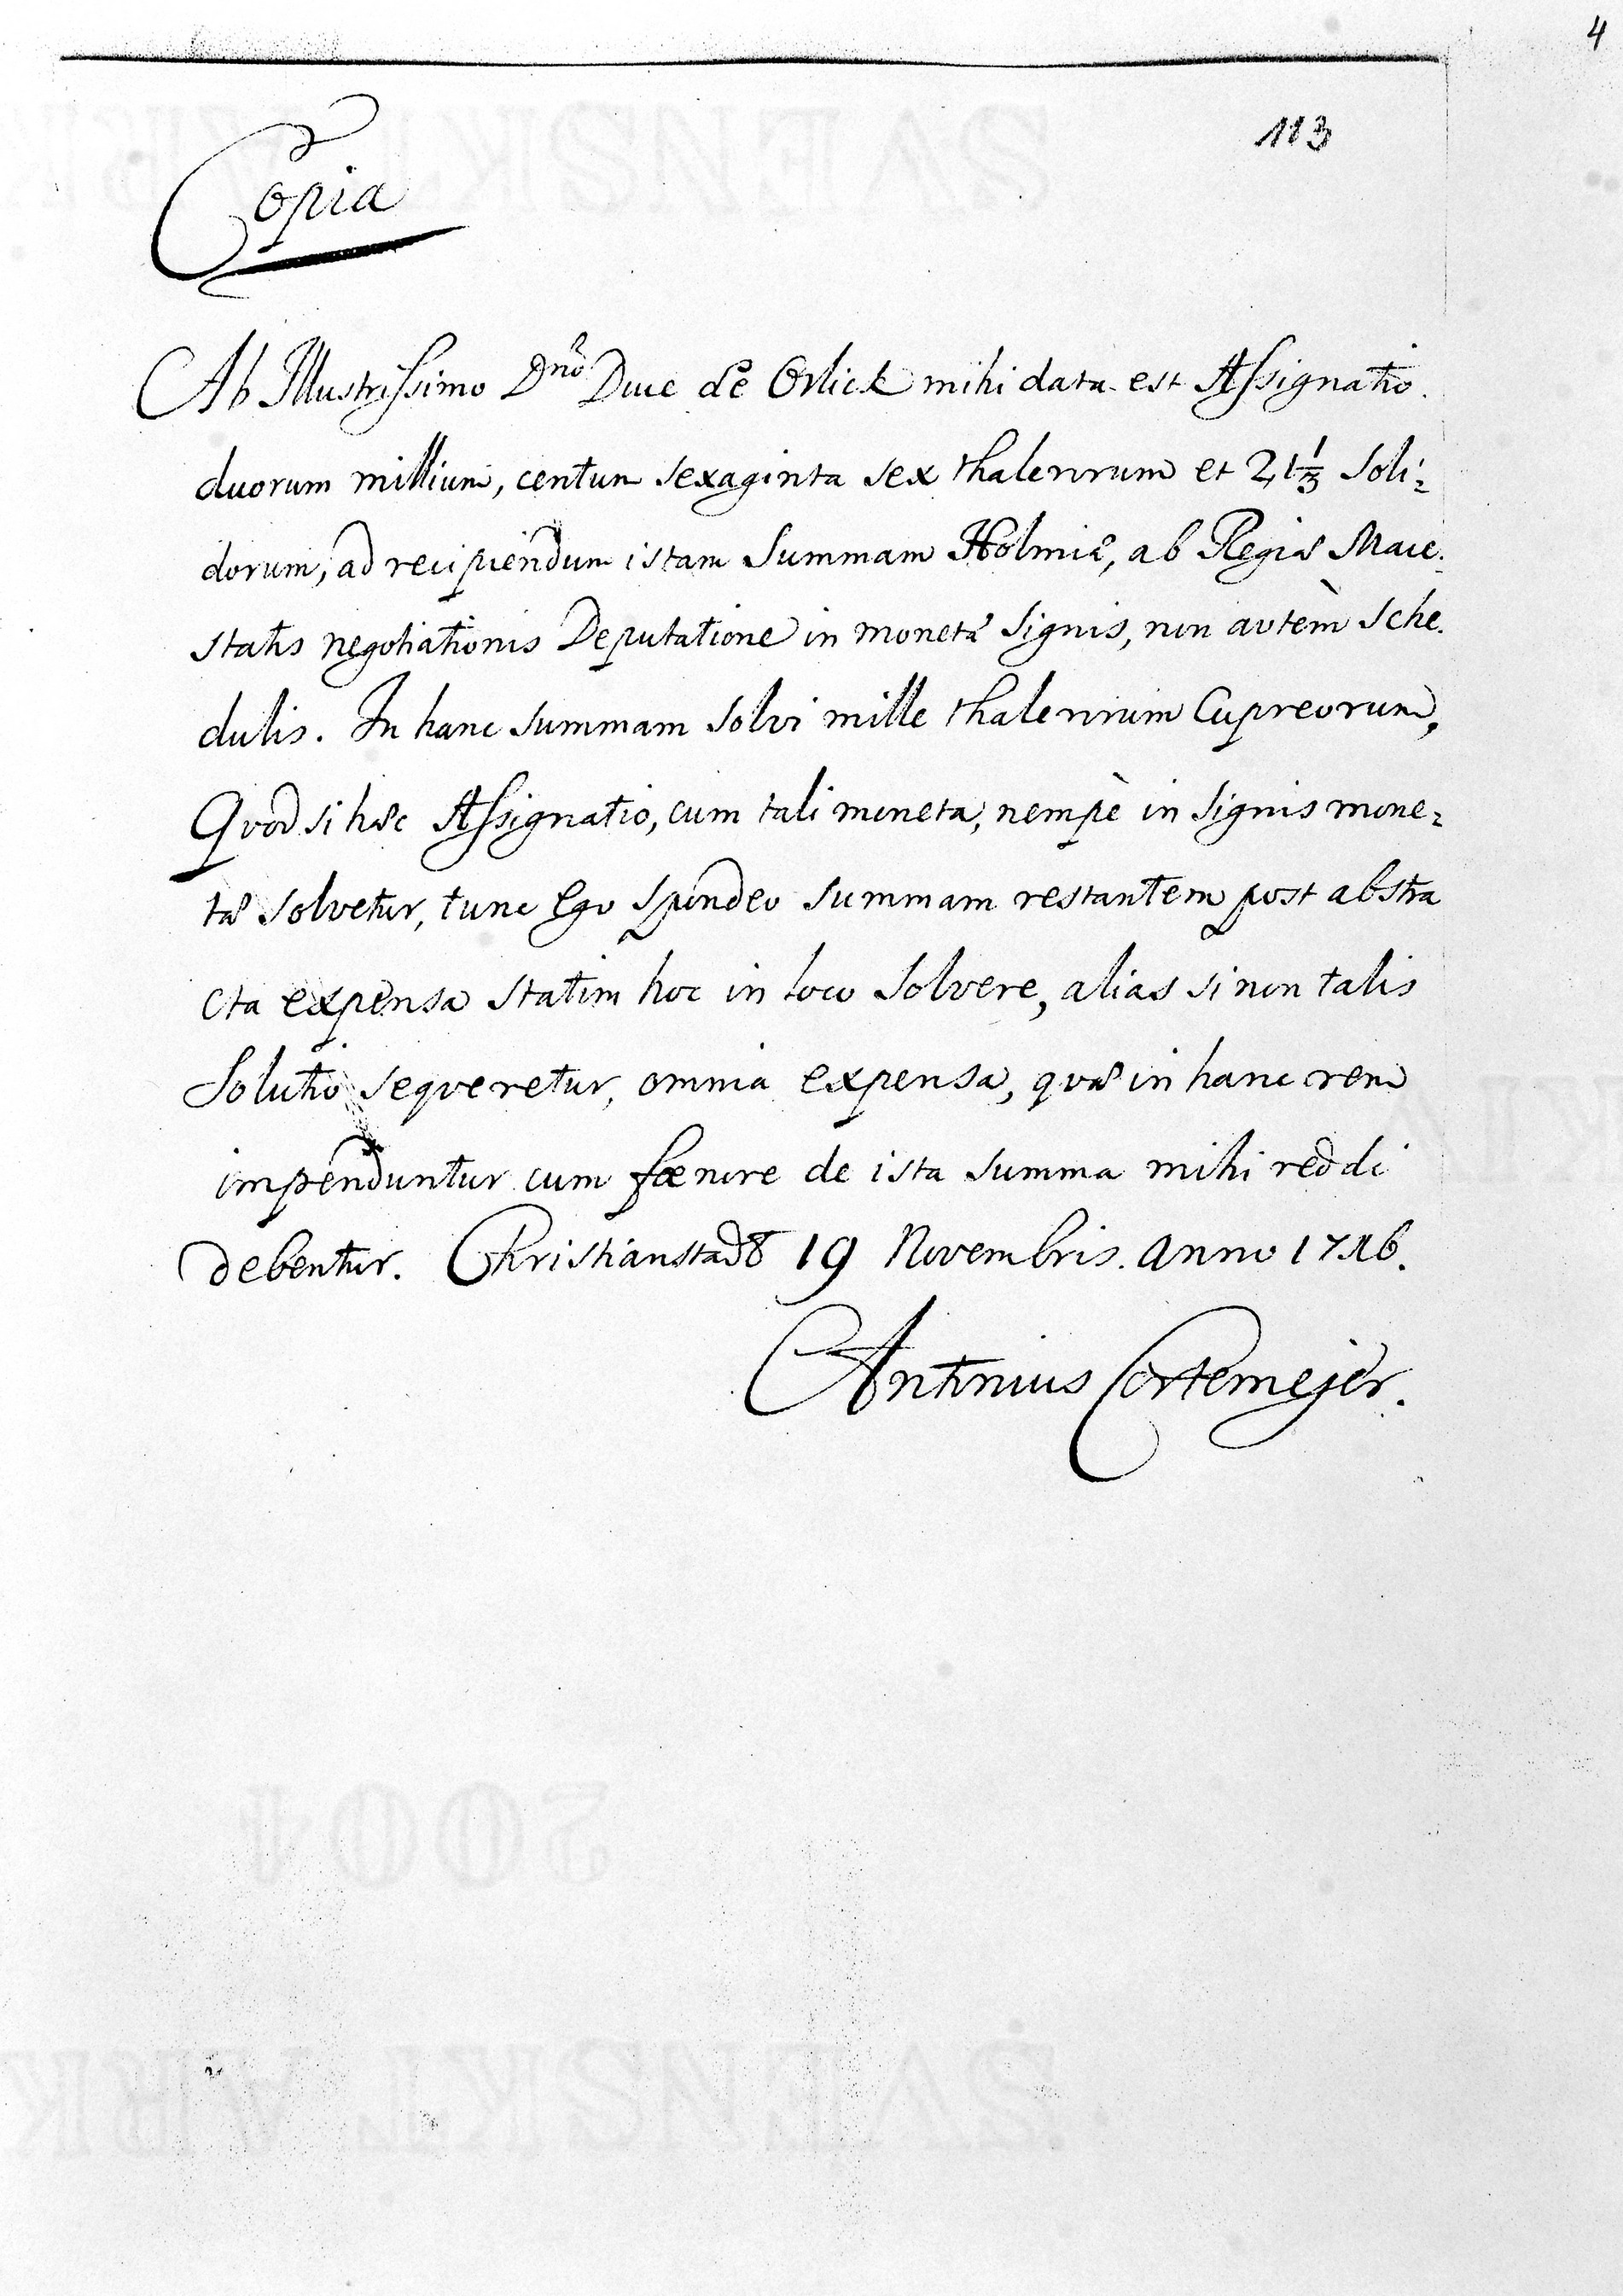 4
113
Copia
Ab Illustrissimo Dno Duce de Orlick mihi data est Assignatio
duorum millium, centum sexaginta sex thalerorum et 21 1/3 Soli=
dorum, ad recipiendum istam Summam Holmiæ, ab Regiæ Maie.
statis negotiationis Deputatione in monetæ Signis, non autem Sche.
dulis. In hanc summam solvi mille thalerorum Cupreorum,
Quod si hæc Assignatio, cum tali moneta, nempè in Signis mone=
tæ Solvetur, tunc Ego Spondeo summam restantem post abstra
cta expensa statim hoc in loco Solvere, alias si non talis
Solutio sequeretur, omnia expensa, quæ in hanc rem
impenduntur cum fœnore de ista summa mihi reddi
debentur. Christianstadt 19 Novembris. Anno 1716.
Antonius Cortemejer.